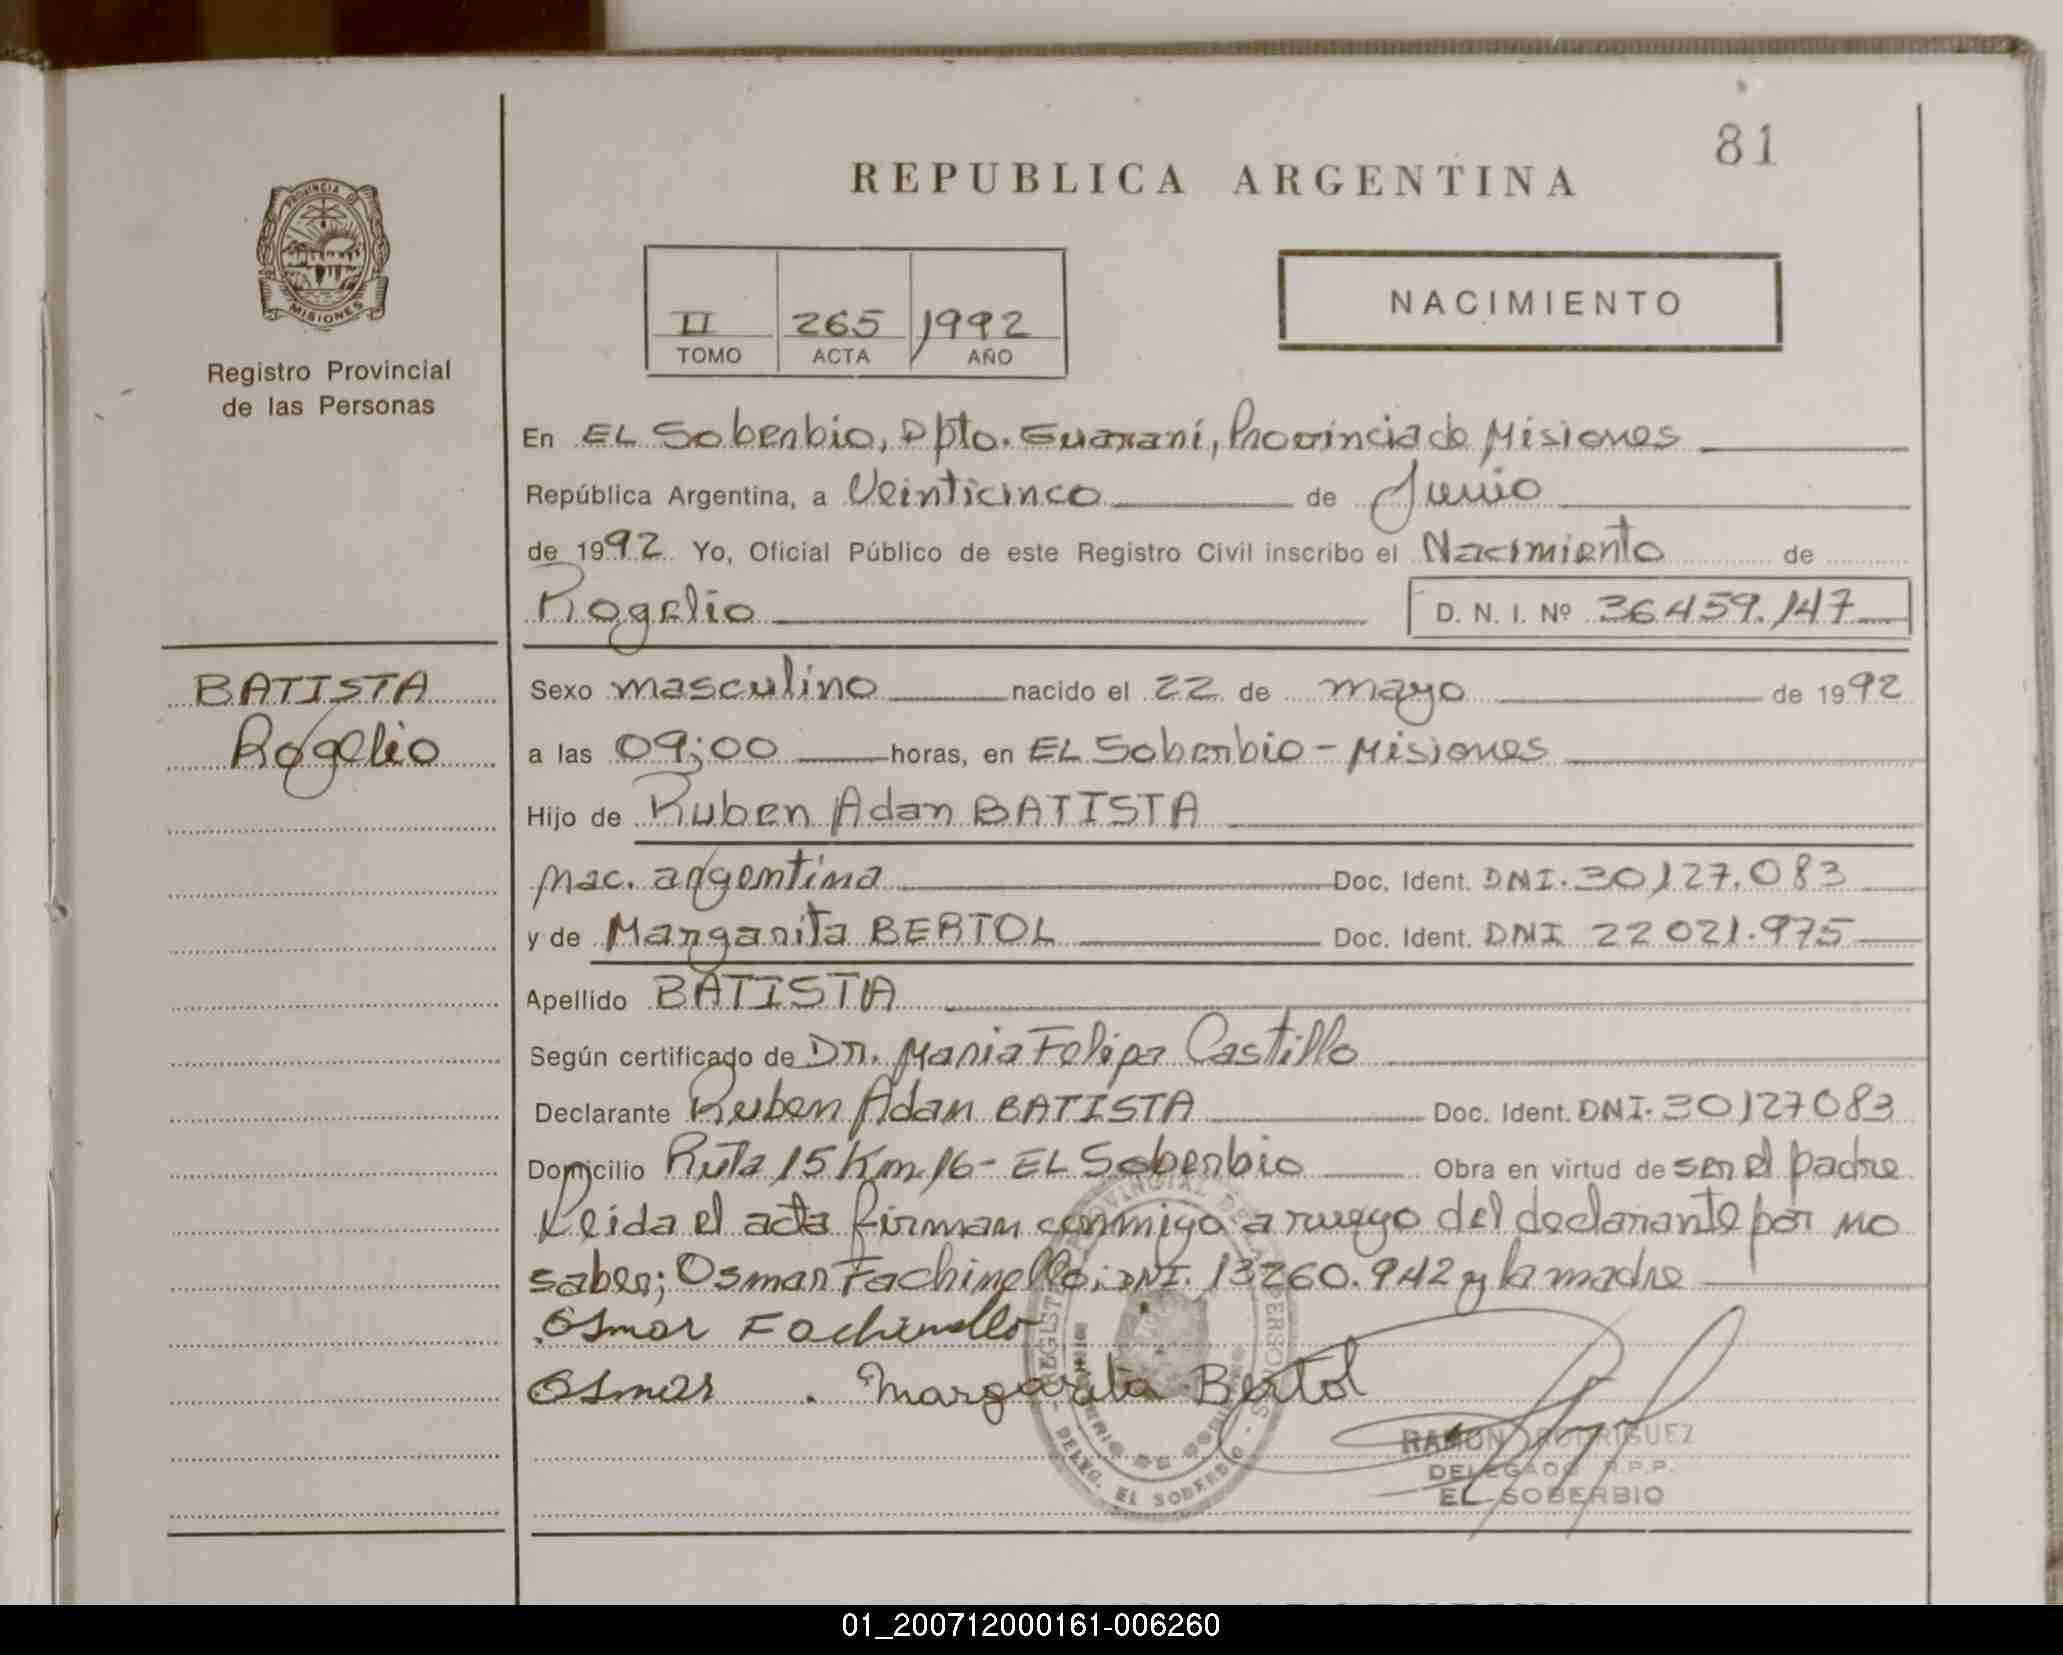 81
REPUBLICA ARGENTINA
PROVINCIA DE
MISIONES
Registro Provincial
de las Personas
II 265 1992
TOMO ACTA AÑO
NACIMIENTO
En EL Soberbio, Dpto. Guarani, Provincia de Misiones
República Argentina, a Veinticinco de Junio
de 1992 Yo, Oficial Público de este Registro Civil inscribo el Nacimiento de
Rogelio D. N. I. Nº 36.459.147
BATISTA
Rogelio
Sexo masculino nacido el 22 de mayo de 1992
a las 09;00 horas, en EL Soberbio - Misiones
Hijo de Ruben Adan BATISTA
nac. argentina Doc. Ident. DNI. 30.127.083
y de Margarita BERTOL Doc. Ident. DNI 22 021.975
Apellido BATISTA
Según certificado de Dr. Maria Felipa Castillo
Declarante Ruben Adan BATISTA Doc. Ident. DNI. 30127083
Domicilio Ruta 15 Km. 16 - EL Soberbio Obra en virtud de ser el padre
Leida el acta firman conmigo a ruego del declarante por no
saber; Osmar Fachinello; DNI. 13260.942 y la madre
Osmar Fachinello
Osmar . Margarita Bertol
RAMON RODRIGUEZ
DELEGADO R.P.P.
EL SOBERBIO
DELEG. EL SOBERBIO
01_200712000161-006260